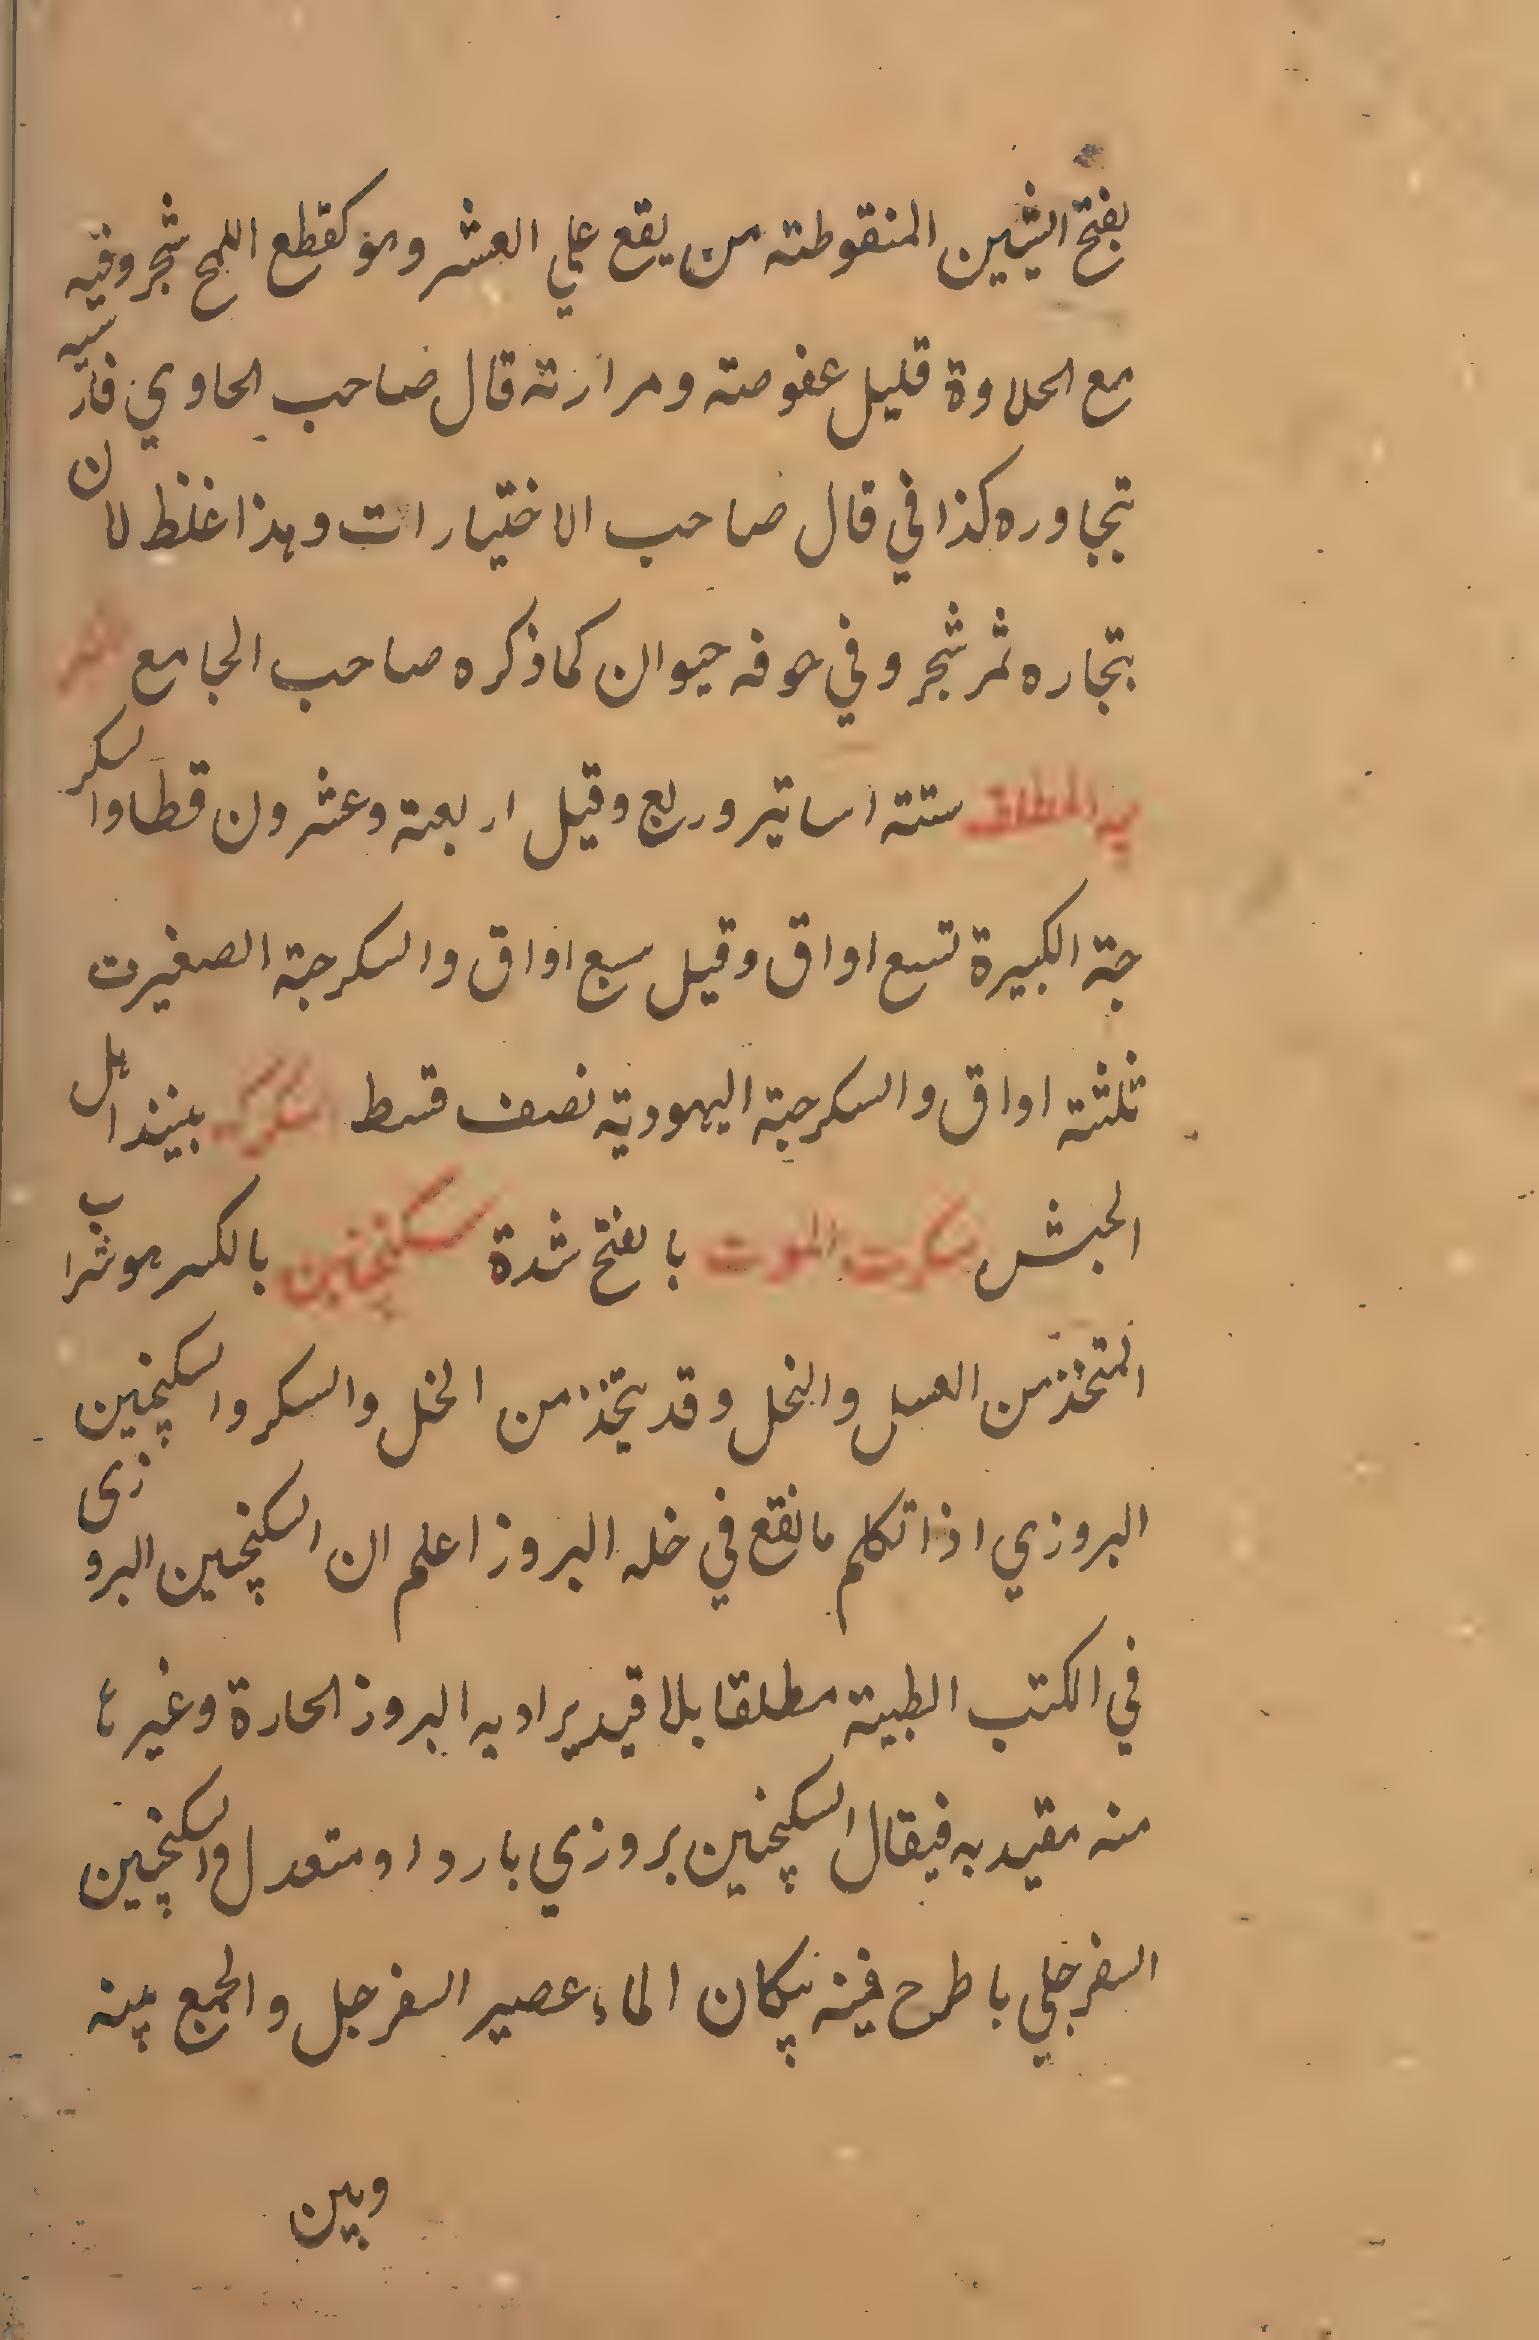 بفتح الشين المنقوطته من يقع علي العشر وهو كقطع الملح شجر وفيه
مع الحلاوة قليل عفوصته ومرارته قال صاحب الحاوي فارسيه
تجاوره كذا في قال صاحب الاختيارات وهذا غلظ لان
بتجاره ثمر شجر وفي جوفه حيوان كما ذكره صاحب الجامع
المطلقه ستته اساتير وربع وقيل اربعته وعشرون قطا والسكر
جة الكبيرة تسع اواق وقيل سبع اواق والسكرجة الصغيرت
ثلثته اواق والسكرجة اليهوديته نصف قسط السكركه بنيذ اهل
الحبش سكرت الموت بالفتح شدة سكنجبين بالكسر هو شراب
المتخذ من العسل والخل وقد يتخذ من الخل والسكر والسكنجبين
البروزي اذا تكلم ما نقع في خله البروز اعلم ان السكنجبين البروزى
في الكتب الطبيته مطلقا بلا قيد يراد به البروز الحارة وغيرها
منه مقيد به فيقال السكنجبين بروزي بارد او متعدل والسكنجبين
السفرجلي با طرح فيه پكان الماء عصير السفرجل والجمع بينه
وبين